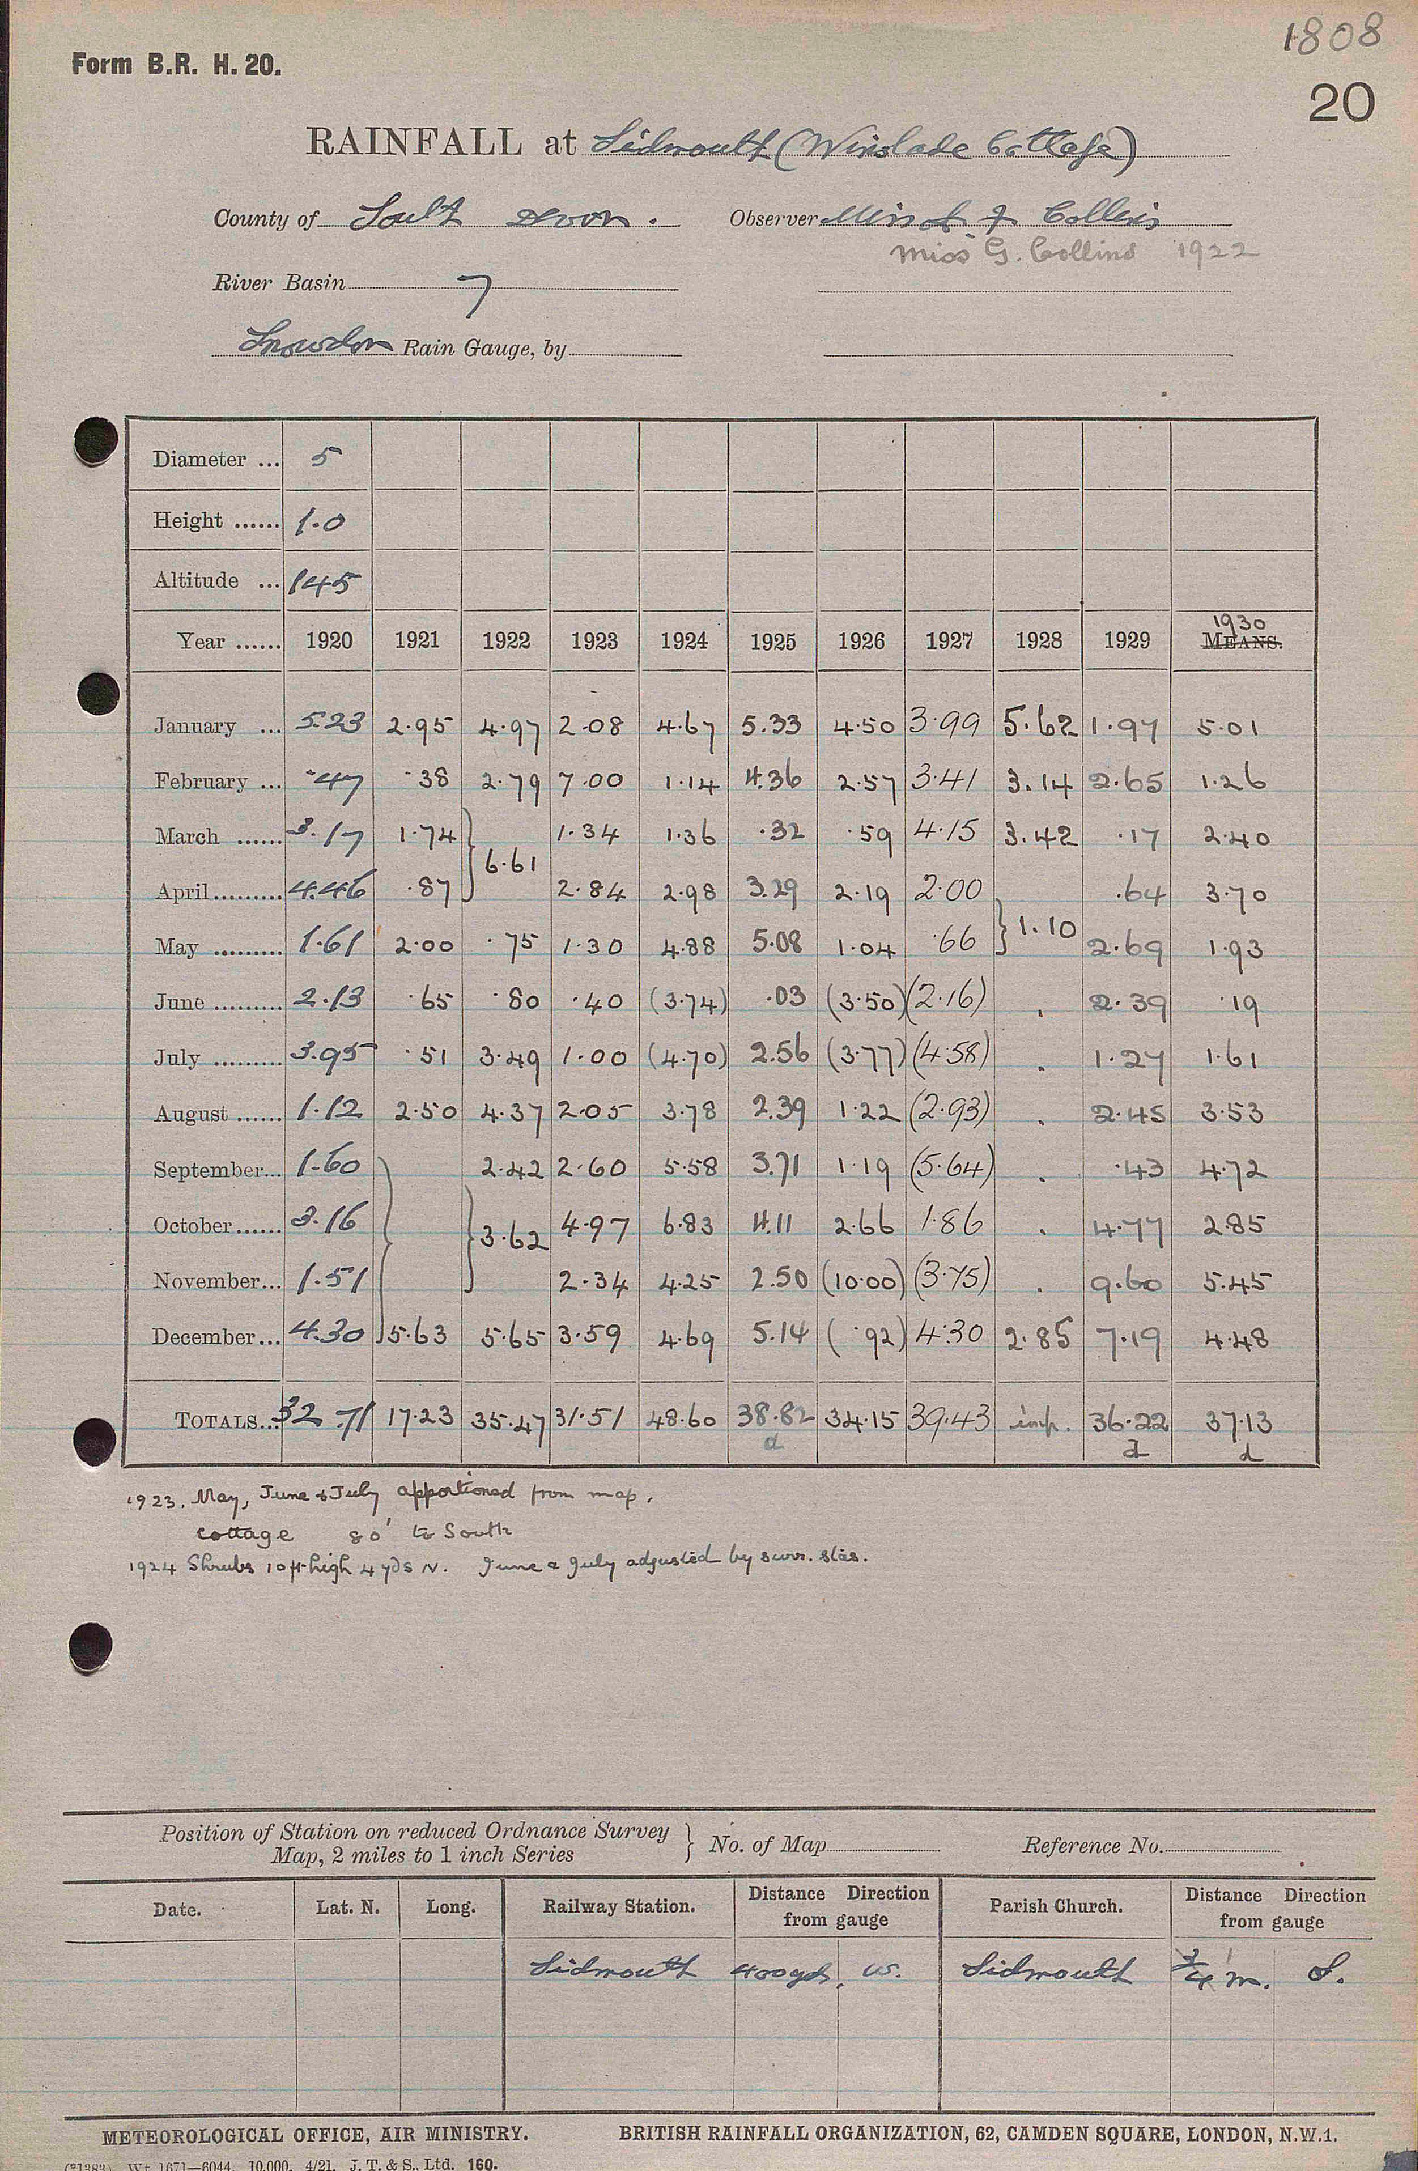 1808
Form B.R. H. 20.
20
RAINFALL at Sidmouth (Winslade Cottage)
County of South Devon. Observer Miss & Collins
Miss G. Collins 1922
River Basin 7
Snowdon Rain Gauge, by
Diameter ... 5
Height ...... 1.0
Altitude ... 145
1930
Year ...... 1920 1921 1922 1923 1924 1925 1926 1927 1928 1929 MEANS.
January ... 5.23 2.95 4.97 2.08 4.67 5.33 4.50 3.99 5.62 1.97 5.01
February ... .47 .38 2.79 7.00 1.14 4.36 2.57 3.41 3.14 2.65 1.26
March ...... 3.17 1.74 } 1.34 1.36 .32 .59 4.15 3.42 .17 2.40
6.61
April......... 4.46 .87 2.84 2.98 3.29 2.19 2.00 .64 3.70
May ......... 1.61 2.00 .75 1.30 4.88 5.08 1.04 .66 } 1.10 2.69 1.93
June ......... 2.13 .65 .80 .40 (3.74) .03 (3.50) (2.16) . 2.39 .19
July ......... 3.95 .51 3.49 1.00 (4.70) 2.56 (3.77) (4.58) . 1.27 1.61
August ...... 1.12 2.50 4.37 2.05 3.78 2.39 1.22 (2.93) . 2.45 3.53
September... 1.60 } 2.42 2.60 5.58 3.71 1.19 (5.64) . .43 4.72
October...... 3.16 } 3.62 4.97 6.83 4.11 2.66 1.86 . 4.77 2.85
November... 1.51 2.34 4.25 2.50 (10.00) (3.75) . 9.60 5.45
December... 4.30 5.63 5.65 3.59 4.69 5.14 ( .92) 4.30 2.85 7.19 4.48
TOTALS... 32.71 17.23 35.47 31.51 48.60 38.82 34.15 39.43 imp. 36.22 37.13
d d d
1923. May, June & July apportioned from map.
cottage 80' to South
1924 Shrubs 10 ft high 4 yds N. June & July adjusted by surr. stas.
Position of Station on reduced Ordnance Survey } No. of Map Reference No.
Map, 2 miles to 1 inch Series
Date. Lat. N. Long. Railway Station. Distance Direction from gauge Parish Church. Distance Direction from gauge
Sidmouth 400 yds. W. Sidmouth 3/4 m. S.
METEOROLOGICAL OFFICE, AIR MINISTRY. BRITISH RAINFALL ORGANIZATION, 62, CAMDEN SQUARE, LONDON, N.W.1.
(*1383) Wt 1671—6044. 10,000. 4/21. J. T. & S., Ltd. 160.